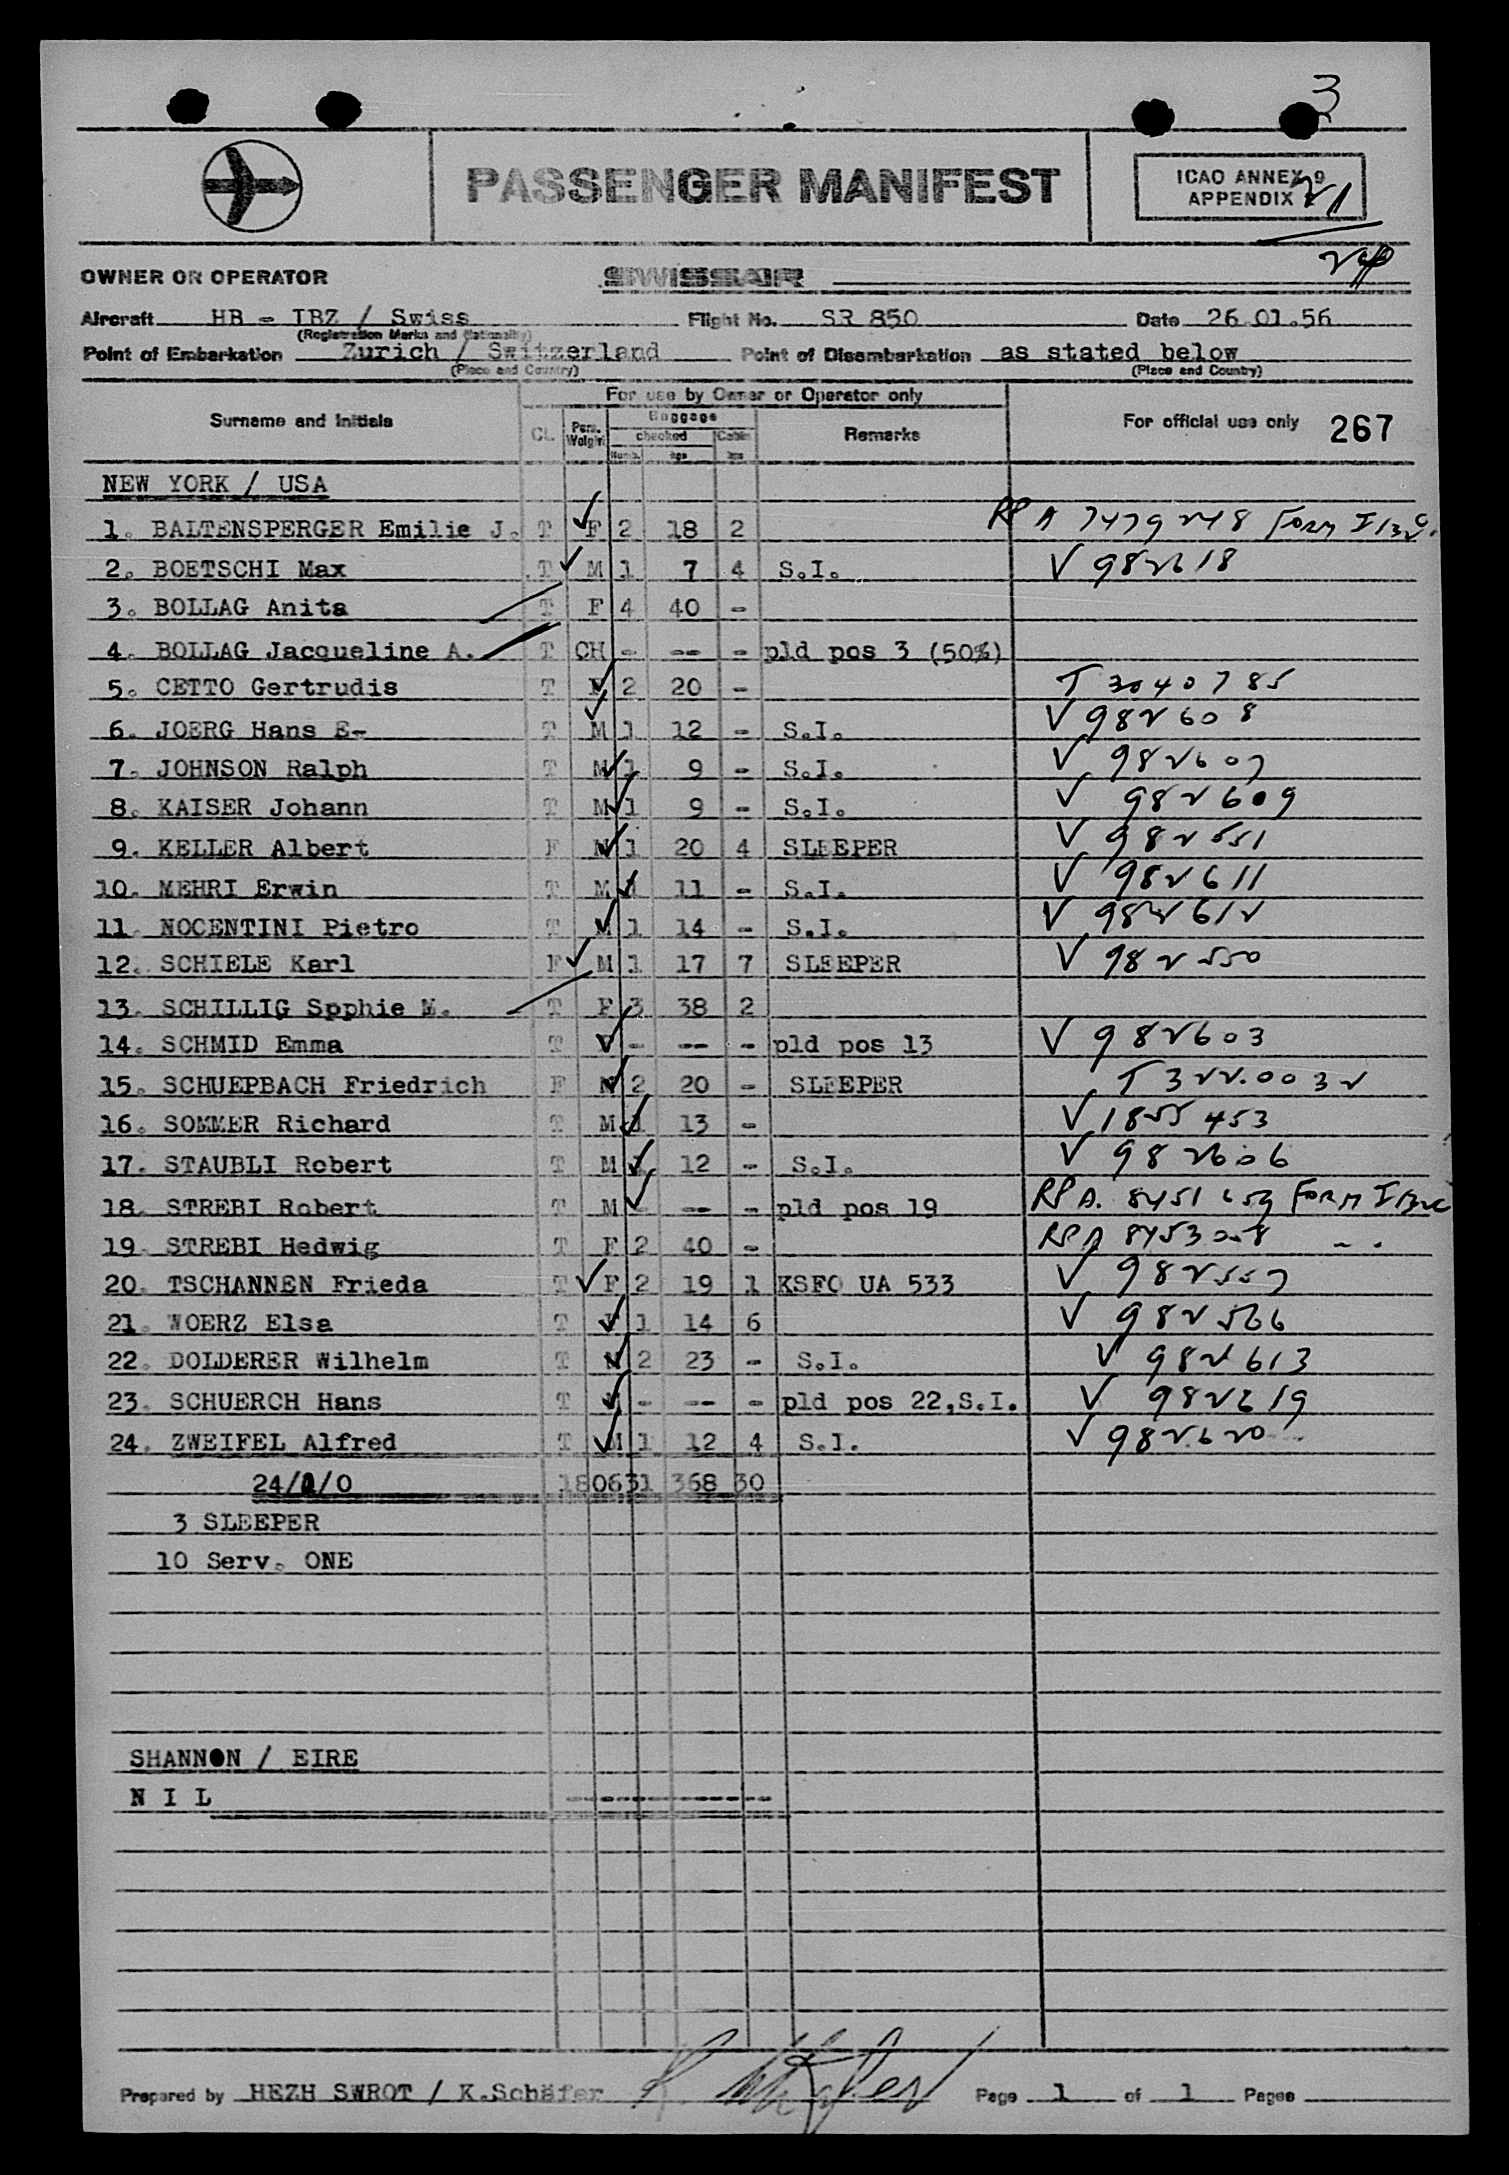 3
PASSENGER MANIFEST
ICAO ANNEX 9
APPENDIX 2
21
OWNER OR OPERATOR SWISSAIR
Aircraft HB - IBZ / Swiss Flight No. SR 850 Date 26.01.56
(Registration Marks and Nationality)
Point of Embarkation Zurich / Switzerland Point of Disembarkation as stated below
(Place and Country) (Place and Country)
For use by Owner or Operator only
Surname and Initials CL. Pers. Weight Baggage checked Numb. kgs Cabin kgs Remarks For official use only 267
NEW YORK / USA
1. BALTENSPERGER Emilie J. T F 2 18 2 RP A 7479248 FORM I 132c.
2. BOETSCHI Max T M 1 7 4 S.I. V 982618
3. BOLLAG Anita T F 4 40 -
4. BOLLAG Jacqueline A. T CH - -- - pld pos 3 (50%)
5. CETTO Gertrudis T F 2 20 - T 3040785
6. JOERG Hans E- T M 1 12 - S.I. V 982608
7. JOHNSON Ralph T M 1 9 - S.I. V 982607
8. KAISER Johann T M 1 9 - S.I. V 982609
9. KELLER Albert F M 1 20 4 SLEEPER V 982551
10. MEHRI Erwin T M 1 11 - S.I. V 982611
11. NOCENTINI Pietro T M 1 14 - S.I. V 982612
12. SCHIELE Karl F M 1 17 7 SLEEPER V 982550
13. SCHILLIG Spphie M. T F 3 38 2
14. SCHMID Emma T F - -- - pld pos 13 V 982603
15. SCHUEPBACH Friedrich F M 2 20 - SLEEPER T 322.0032
16. SOMMER Richard T M 1 13 - V 1855453
17. STAUBLI Robert T M 1 12 - S.I. V 982606
18. STREBI Robert T M - -- - pld pos 19 RP A. 8451653 FORM I 132c
19. STREBI Hedwig T F 2 40 - RP A 8453028 - -
20. TSCHANNEN Frieda T F 2 19 1 KSFO UA 533 V 982557
21. WOERZ Elsa T F 1 14 6 V 982566
22. DOLDERER Wilhelm T M 2 23 - S.I. V 982613
23. SCHUERCH Hans T M - -- - pld pos 22,S.I. V 982619
24. ZWEIFEL Alfred T M 1 12 4 S.I. V 982620
24/1/0 1806 31 368 30
3 SLEEPER
10 Serv. ONE
SHANNON / EIRE
N I L -------------
Prepared by HEZH SWROT / K.Schäfer K. Schäfer Page 1 of 1 Pages